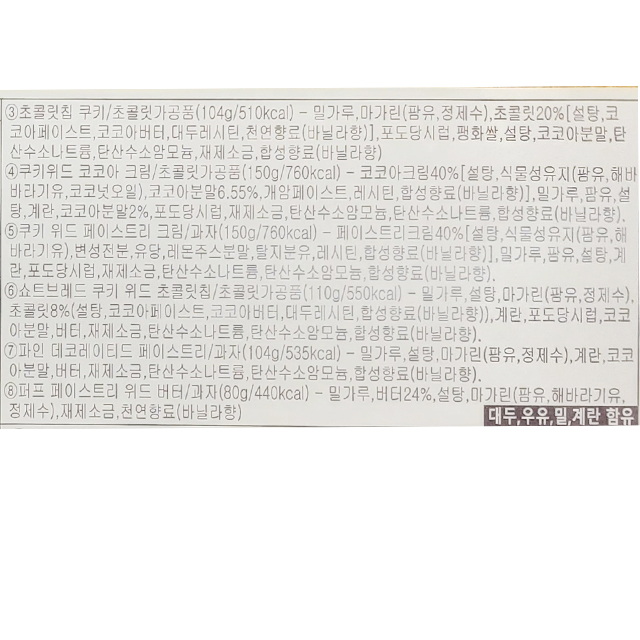 ③초콜릿칩 쿠키/초콜릿가공품(104g/510kcal) - 밀가루,마가린(팜유,정제수),초콜릿20%[설탕,코
코아페이스트,코코아버터,대두레시틴,천연향료(바닐라향)],포도당시럽,팽화쌀,설탕,코코아분말,탄
산수소나트륨,탄산수소암모늄,재제소금,합성향료(바닐라향)
④쿠키위드 코코아 크림/초콜릿가공품(150g/760kcal) - 코코아크림40%[설탕,식물성유지(팜유,해바
바라기유,코코넛오일),코코아분말6.55%,개암페이스트,레시틴,합성향료(바닐라향)],밀가루,팜유,설
탕,계란,코코아분말2%,포도당시럽,재제소금,탄산수소암모늄,탄산수소나트륨,합성향료(바닐라향).
⑤쿠키 위드 페이스트리 크림/과자(150g/760kcal) - 페이스트리크림40%[설탕,식물성유지(팜유,해
바라기유),변성전분,유당,레몬주스분말,탈지분유,레시틴,합성향료(바닐라향)],밀가루,팜유,설탕,계
란,포도당시럽,재제소금,탄산수소나트륨,탄산수소암모늄,합성향료(바닐라향).
⑥쇼트브레드 쿠키 위드 초콜릿칩/초콜릿가공품(110g/550kcal) - 밀가루,설탕,마가린(팜유,정제수),
초콜릿8%(설탕,코코아페이스트,코코아버터,대두레시틴,합성향료(바닐라향)),계란,포도당시럽,코코
아분말,버터,재제소금,탄산수소나트륨,탄산수소암모늄,합성향료(바닐라향).
⑦파인 데코레이티드 페이스트리/과자(104g/535kcal) - 밀가루,설탕,마가린(팜유,정제수),계란,코코
아분말,버터,재제소금,탄산수소나트륨,탄산수소암모늄,합성향료(바닐라향).
⑧퍼프 페이스트리 위드 버터/과자(80g/440kcal) - 밀가루,버터24%,설탕,마가린(팜유,해바라기유,
정제수),재제소금,천연향료(바닐라향)
대두,우유,밀,계란 함유